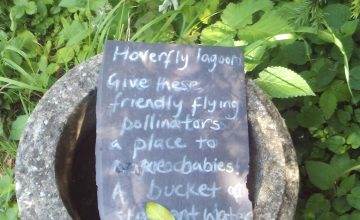 Hoverfly lagoon
Give these
friendly flying
pollinators
a place to
babies!
A bucket of
stagnant water